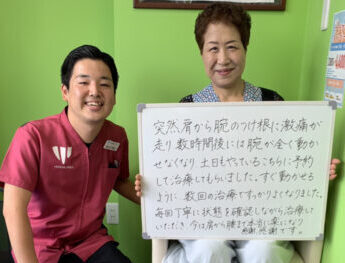 突然、肩から腕のつけ根に激痛が
走り数時間後には腕が全く動か
せなくなり土日もやっているこちらに予約
して治療してもらいました。すぐ動かせる
ように 数回の治療ですっかりよくなりました。
毎回丁寧に状態を確認しながら治療して
いただき 今は肩から腰まで本当に楽になり
感謝感謝です。